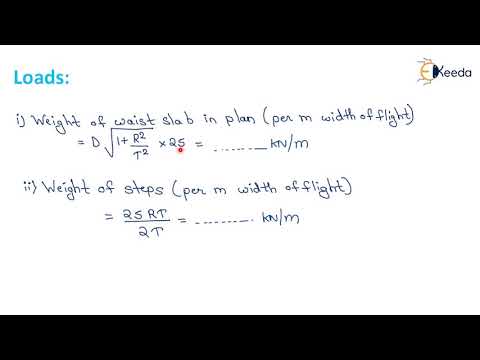 Keeda
Loads:
i) Weight of waist slab in plan (per m width of flight)
= D √(1 + R²/T²) × 25 = ........ kN/m
ii) Weight of steps (per m width of flight)
= 25 RT / 2T = ........ kN/m